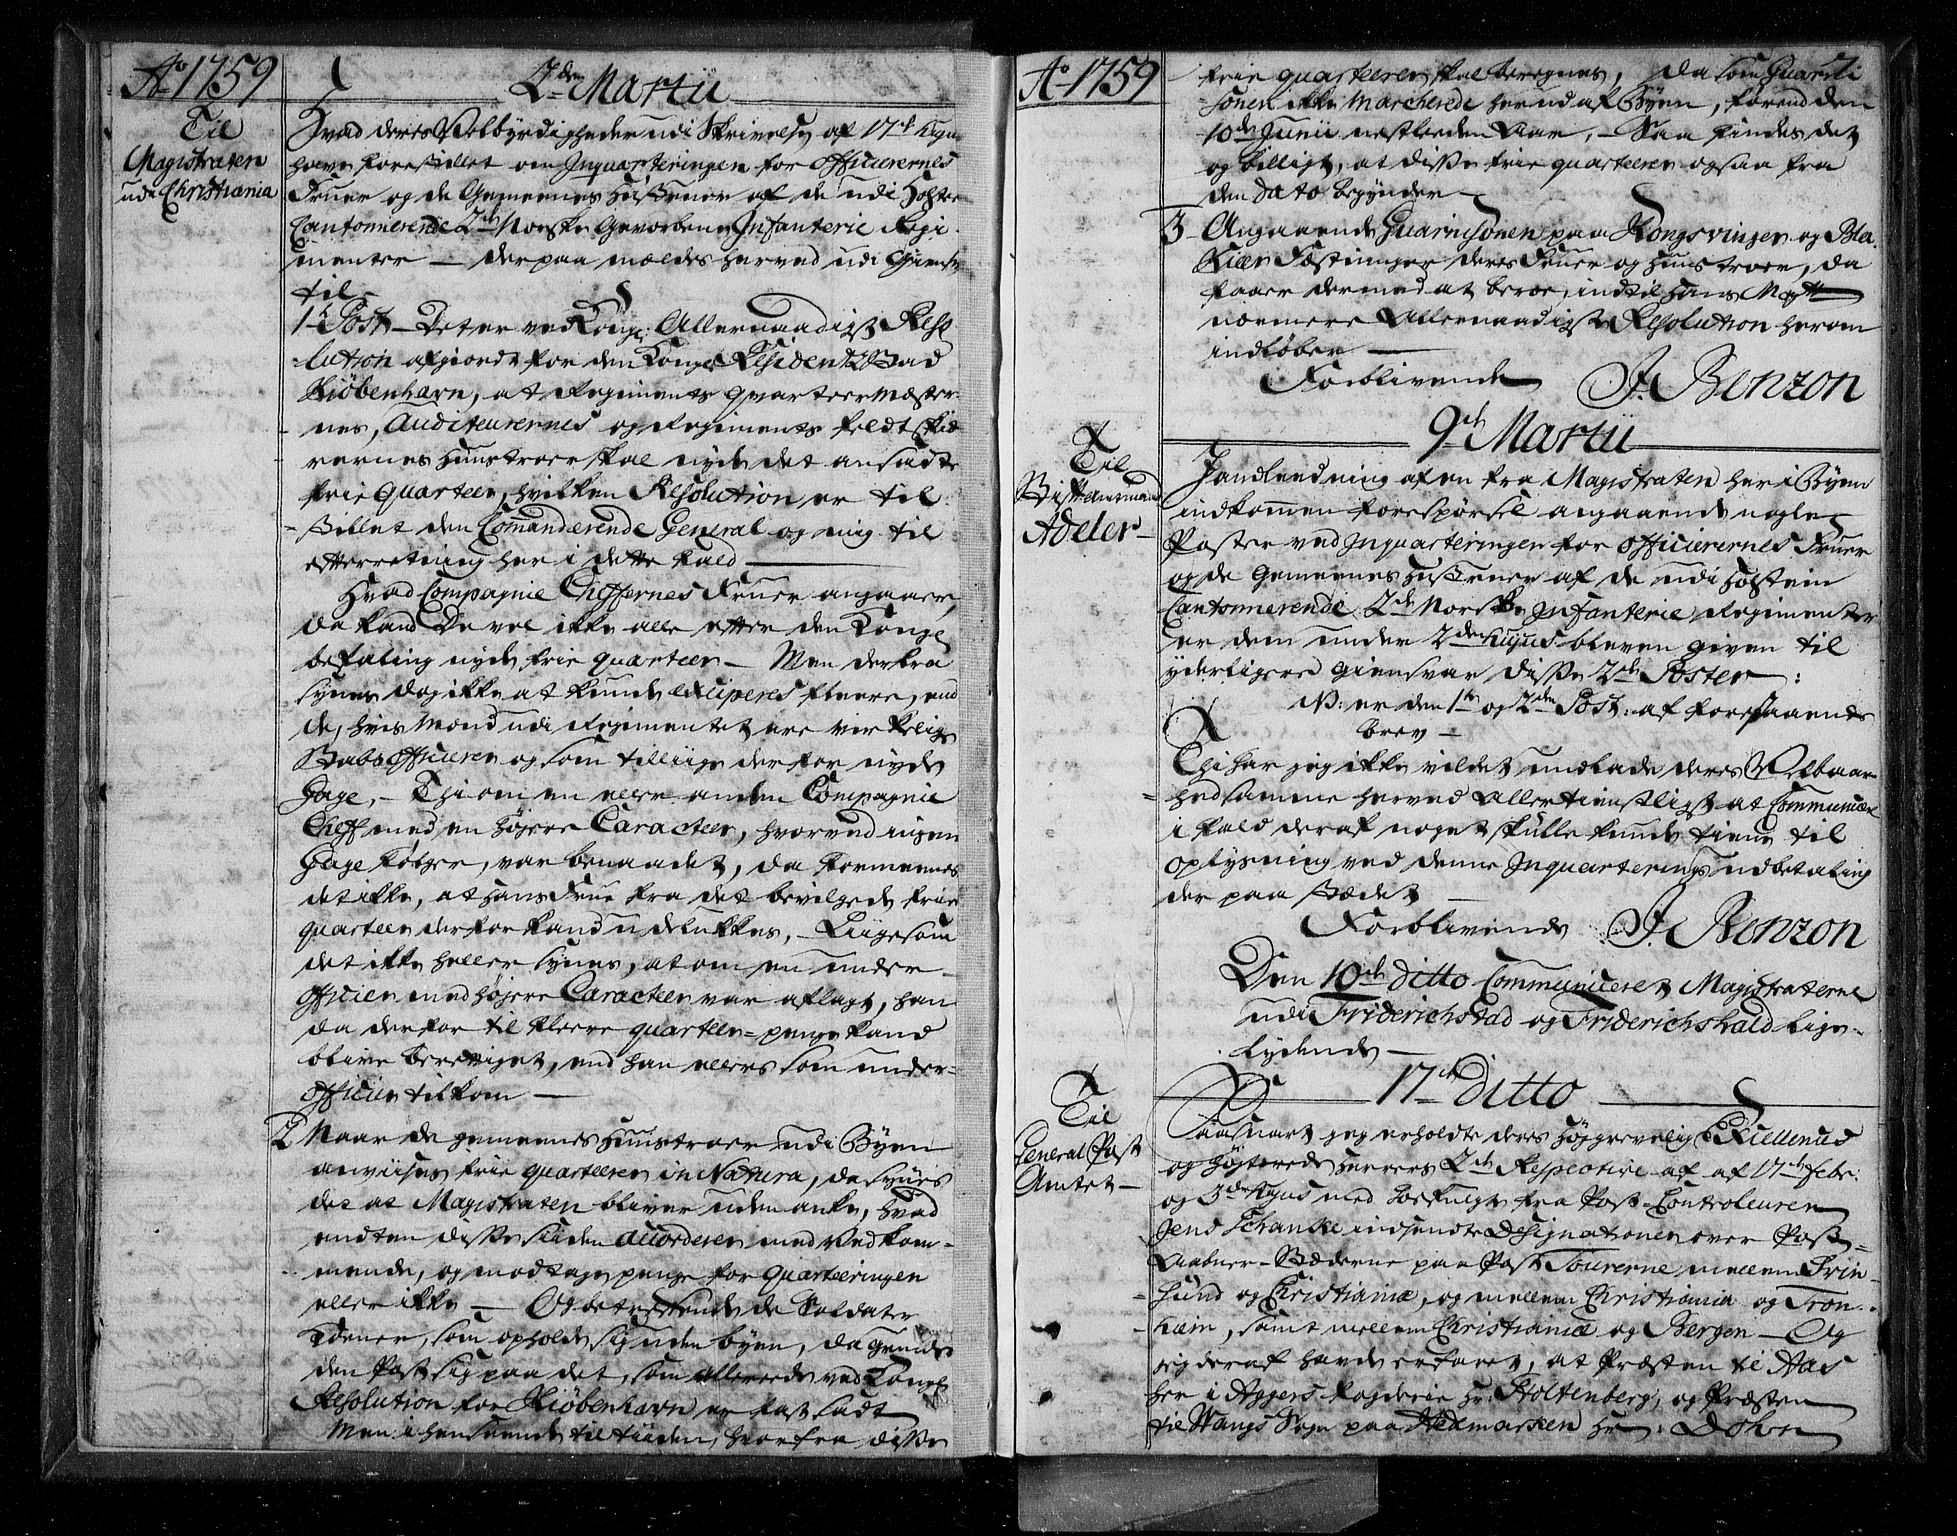 Ao 1759
2den Martii
Til
Magistraten
udi Christiania
Hvad deres Velbyrdigheder udi Skrivelse af 17de
have forestillet om Inquarteringen for Officierernes
Fruer og de Gemeenes Hustruer af de udi Holsten
Cantonnerende 2de Norske Gevorbene Infanterie Regi-
menter — derpaa meldes herved udi Giensvar
til
1te Post — Det er ved Kongl. Allernaadigst Reso-
lution afgiordt for den Kongl. Residentz Stad
Kiöbenhavn, at Regiments Quarteermester-
nes, Auditeurernes og Regiments Feldtskiæ-
rernes Hustroer skal nyde det ansatte
frie Quarteer, hvilken Resolution er til-
stillet den Comanderende General og mig til
efterretning her i dette fald —
Hvad Compagnie Cheffernes Fruer angaaer,
da kand De vel ikke alle efter den Kongl.
befaling nyde frie Quarteer — Men derfra
synes dog ikke at kunde exciperes fleere, end
de, hvis Mænd udi Regimentet ere virkelige
Stabs Officierer og som tillige derfor nyde
Gage, — Thi om en eller anden Compagnie
Cheff med en højere Caracteer, hvorved ingen
Gage følger, var benaadet, da formeenes
det ikke, at hans Frue fra det bevilgede frie
Quarteer derfor kand udelukkes, — Liigesom
det ikke heller synes, at om en under-
officier med højere Caracteer var aflagt, han
da derfor til fleere quarteer-penge kand
blive berettiget, end han ellers som under-
officier tilkom —
2 Naar de gemeenes Hustroer udi Byen
anviises frie quarteerer in Natura, da synes
det at Magistraten bliver uden anke, hvad
endten disse siden accorderer med Vedkom-
mende, og modtage penge for Quarteeringen
eller ikke — Og betreffende de Soldater
Koener, som opholde sig uden byen, da grunder
den Post sig paa det, som allereede ved Kongl.
Resolution for Kiöbenhavn er fastsadt
Men i henseende til tiiden, hvorfra disse
Ao 1759
frie quarteerer skal beregnes, da som Guarni-
sonen ikke Marcherede herud af Byen, förend den
10de Junii nestleeden Aar, — Saa findes det
og billigt, at disse frie quarteerer ogsaa fra
den Dato begynder —
3 Angaaende Guarnisonen paa Kongsvinger og Bla-
kiær Fæstninger deres Fruer og Hustroer, da
faaer dermed at beroe, indtil Hans Maytt
nærmere Allernaadigste Resolution herom
indløber —
Forblivende J. Benzon
9de Martii
Til
Stiftamtmand
Adeler —
I anledning af en fra Magistraten her i Byen
indkommen forespörsel angaaende nogle
Poster ved Inquarteringen for Officierernes Fruer
og de Gemeenes Hustruer af de udi Holsteen
Cantonnerende 2de Norske Infanterie Regimenter
er dem under 2den hujus bleven given til
yderligere giensvar disse 2de Poster:
NB: er den 1te og 2den Post: af forestaaende
brev —
Thi har jeg ikke vildet undlade deres Velbaaren-
hed samme herved Allertienstligst at Communicere
i fald deraf noget skulle kunde tiene til
oplysning ved denne Inquarterings udbetaling
der paa Stædet —
Forblivende J. Benzon
Den 10de ditto Communiceret Magistraterne
udi Friderichstad og Friderichshald lige-
lydende —
17de Ditto
Til
General Post
Amtet —
Saasnart jeg erholdte deres Højgrevelig Excellence
og Højtærede Herrers 2de Respective af af 17de Febr:
og 3de hujus med hosfulgte fra Post-Controleuren
Jens Schanke indsendte Designationer over Post-
Aabner-Stæderne paa Post Tourerne mellem Svin-
sund og Christiania, og mellem Christiania og Tron-
hiem, samt mellem Christiania og Bergen — Og
jeg deraf havde erfaret, at Præsten til Aas
her i Aggers fogderie Hr. Stoltenberg, og Præsten
til Wangs Sogn paa Hedemarken Hr: Dohn